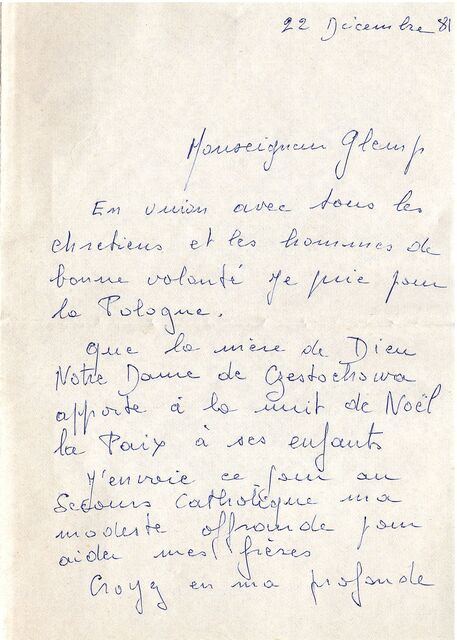 22 Décembre 81
Monseigneur Glemp
En union avec tous les
chretiens et les hommes de
bonne volonté je prie pour
la Pologne.
Que la mère de Dieu
Notre Dame de Czestochowa
apporte à la nuit de Noël
la Paix à ses enfants
J'envoie ce jour au
Secours Catholique ma
modeste offrande pour
aider mes frères
Croyez en ma profonde